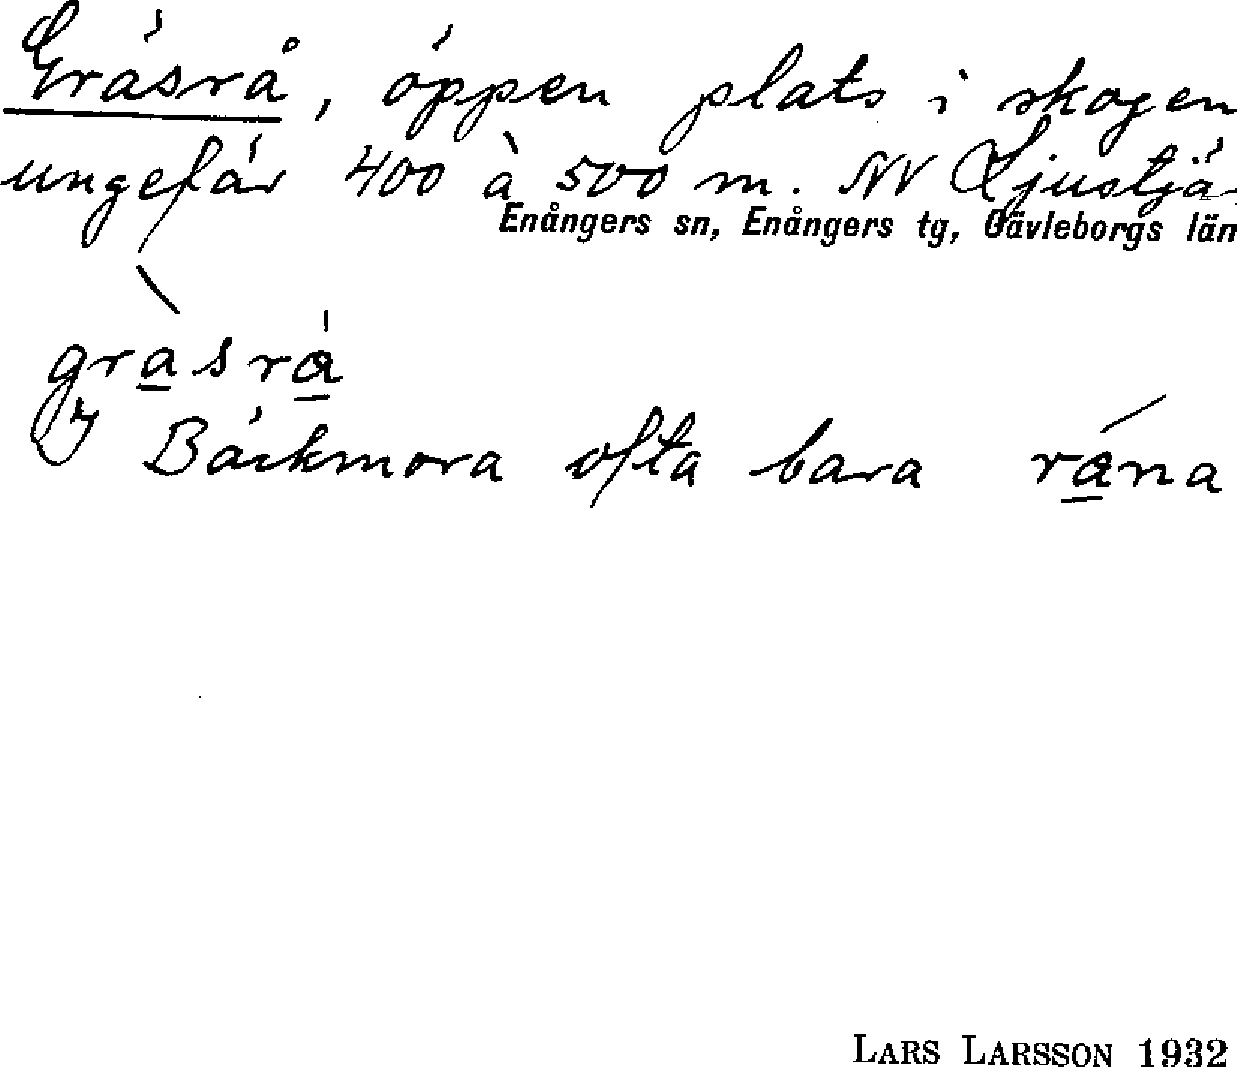 Gräsrå, öppen plats i skogen
ungefär 400 à 500 m. NV Ljustjä
Enångers sn, Enångers tg, Gävleborgs län
gràsrá
I Bäckmora ofta bara råna
Lars Larsson 1932